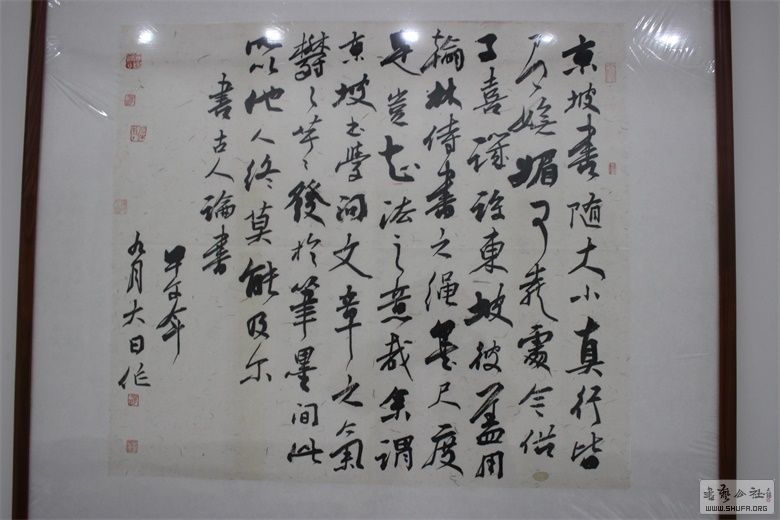 東坡書随大小真行皆
有嫵媚可喜處今俗
子喜譏評東坡彼蓋用
翰林侍書之绳墨尺度
是豈知法之意哉余謂
東坡书學问文章之氣
鬱々芊々發於筆墨间此
所以他人终莫能及尔
書古人論書
甲午年
九月大日作
書藝公社
WWW.SHUFA.ORG